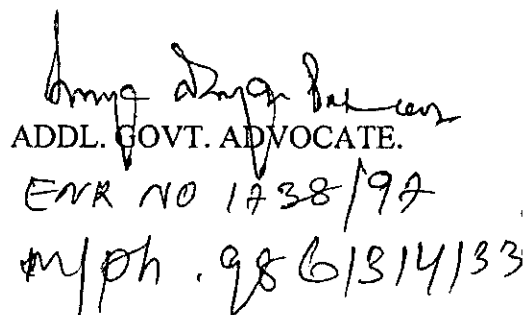 ADDL. GOVT. ADVOCATE.
ENR NO 1738/97
M/Ph. 9861314133